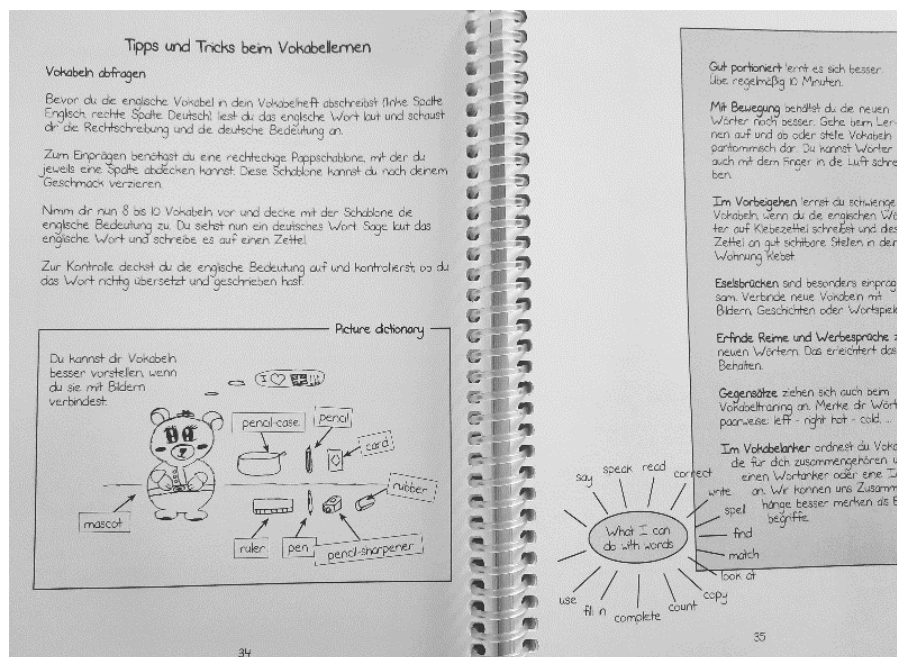 Tipps und Tricks beim Vokabellernen
Vokabeln abfragen
Bevor du die englische Vokabel in dein Vokabelheft abschreibst (linke Spalte
Englisch, rechte Spalte Deutsch), liest du das englische Wort laut und schaust
dir die Rechtschreibung und die deutsche Bedeutung an.
Zum Einprägen benötigst du eine rechteckige Pappschablone, mit der du
jeweils eine Spalte abdecken kannst. Diese Schablone kannst du nach deinem
Geschmack verzieren.
Nimm dir nun 8 bis 10 Vokabeln vor und decke mit der Schablone die
englische Bedeutung zu. Du siehst nun ein deutsches Wort. Sage laut das
englische Wort und schreibe es auf einen Zettel.
Zur Kontrolle deckst du die englische Bedeutung auf und kontrollierst, ob du
das Wort richtig übersetzt und geschrieben hast.
Picture dictionary
Du kannst dir Vokabeln
besser vorstellen, wenn
du sie mit Bildern
verbindest.
I
pencil-case
pencil
card
rubber
mascot
ruler
pen
pencil-sharpener
34
Gut portioniert lernt es sich besser.
Übe regelmäßig 10 Minuten.
Mit Bewegung behältst du die neuen
Wörter noch besser. Gehe beim Ler-
nen auf und ab oder stelle Vokabeln
pantomimisch dar. Du kannst Wörter
auch mit dem Finger in die Luft schrei
ben.
Im Vorbeigehen lernst du schwierige
Vokabeln, wenn du die englischen Wö
ter auf Klebezettel schreibst und dies
Zettel an gut sichtbare Stellen in der
Wohnung klebst.
Eselsbrücken sind besonders einpräg
sam. Verbinde neue Vokabeln mit
Bildern, Geschichten oder Wortspiele
Erfinde Reime und Werbesprüche z
neuen Wörtern. Das erleichtert das
Behalten.
Gegensätze ziehen sich auch beim
Vokabeltraining an. Merke dir Wört
paarweise: left - right, hot - cold, ...
Im Vokabelanker ordnest du Voka
die für dich zusammengehören, u
einen Wortanker oder eine I
an. Wir können uns Zusamm
hänge besser merken als E
begriffe.
What I can
do with words
say
speak
read
correct
write
spell
find
match
look at
copy
count
complete
fill in
use
35